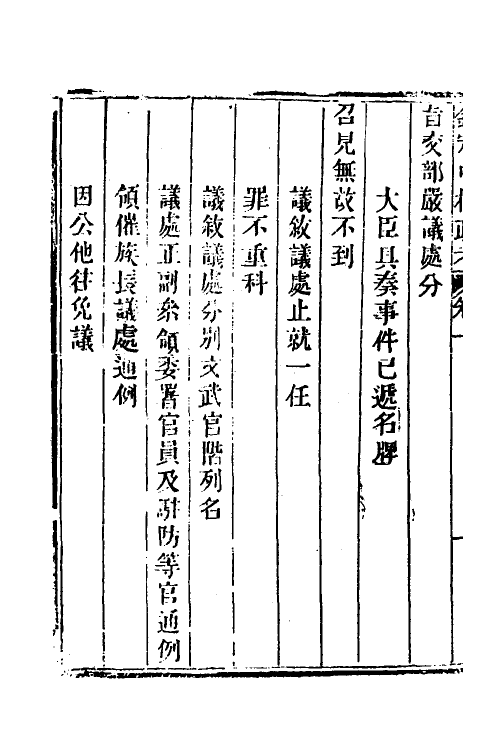 旨交部嚴議處分
大臣具奏事件已遞名牌
召見無故不到
議敘議處止就一任
罪不重科
議敘議處分別文武官階列名
議處正副參領委署官員及駐防等官通例
領催族長議處通例
因公他往免議